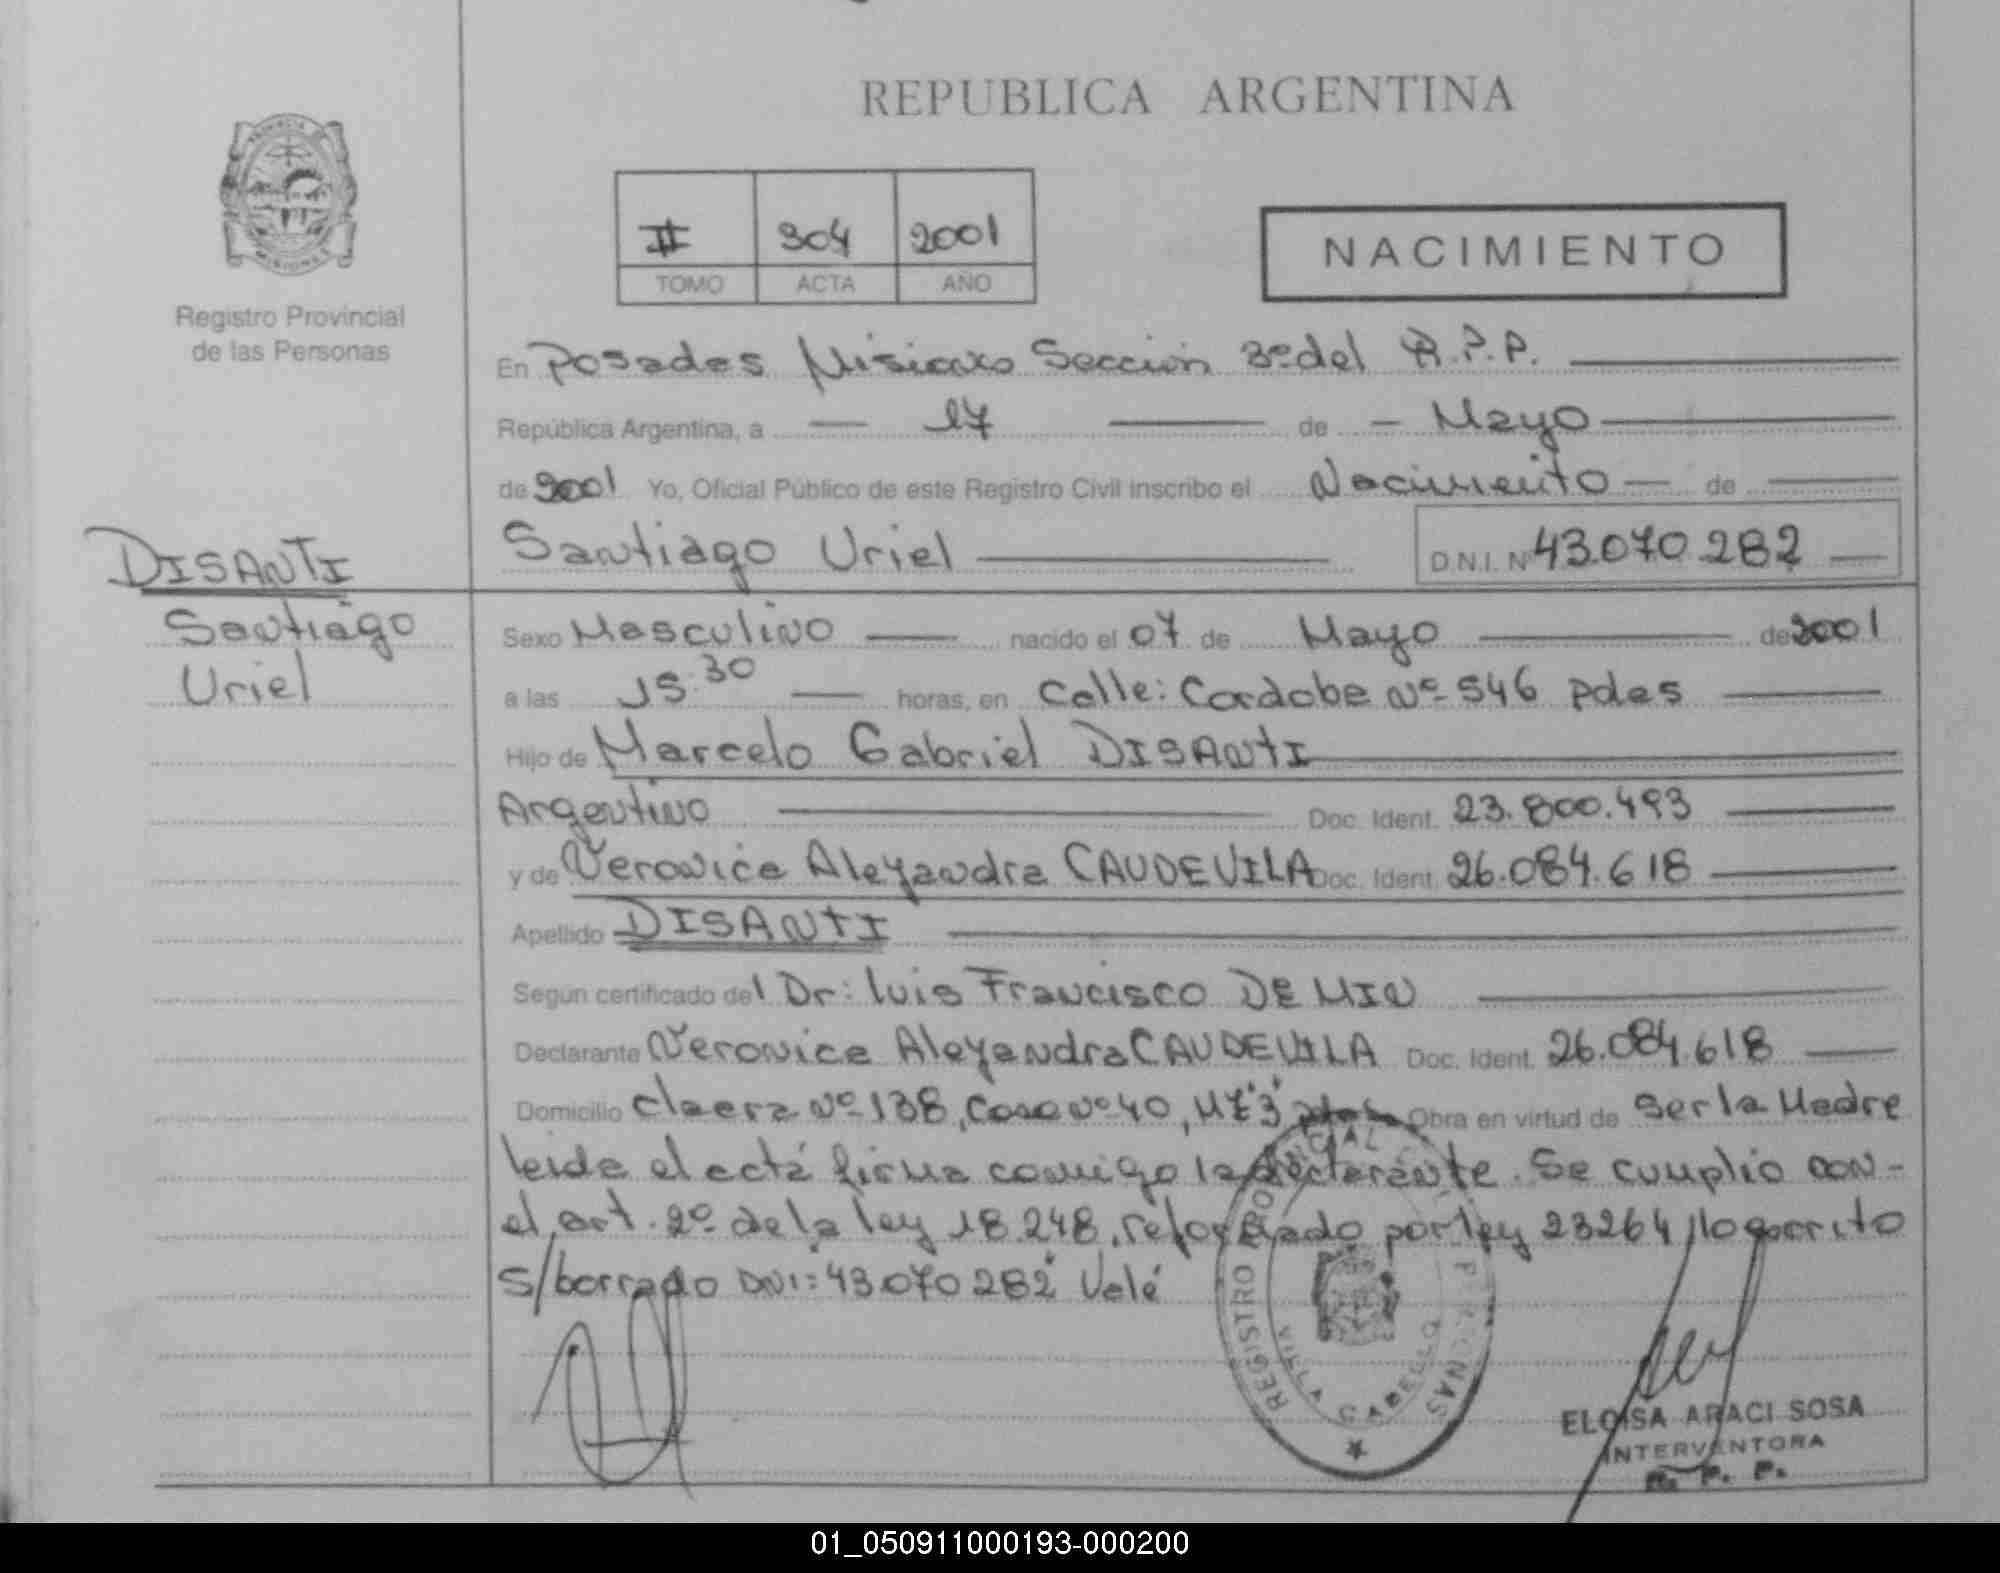 REPUBLICA ARGENTINA
PROVINCIA
MISIONES
Registro Provincial
de las Personas
II 304 2001
TOMO ACTA AÑO
NACIMIENTO
En Posadas Misiones Sección 3º del R.P.P.
República Argentina, a 17 de Mayo
de 2001 Yo, Oficial Público de este Registro Civil inscribo el Nacimiento de
Santiago Uriel D.N.I. Nº 43.070.282
DISANTI
Santiago
Uriel
Sexo Masculino nacido el 07 de Mayo de 2001
a las 15:30 horas, en Calle: Cordoba Nº 546 Pdas
Hijo de Marcelo Gabriel DISANTI
Argentino Doc. Ident. 23.800.493
y de Veronica Aleyandra CAUDEVILA Doc. Ident. 26.084.618
Apellido DISANTI
Según certificado del Dr: Luis Francisco DE MIN
Declarante Veronica Aleyandra CAUDEVILA Doc. Ident. 26.084.618
Domicilio Nº 138, Casa Nº 40, Obra en virtud de Ser la Madre
leida el acta firma conmigo la declarante. Se cumplio con-
el art. 2º de la ley 18.248, por ley 23264
s/borrado DNI: 43.070.282 Vale
REGISTRO PROVINCIAL PERSONAS
VILLA CABELLO
ELOISA ARACI SOSA
INTERVENTORA
R. P. P.
01_050911000193-000200